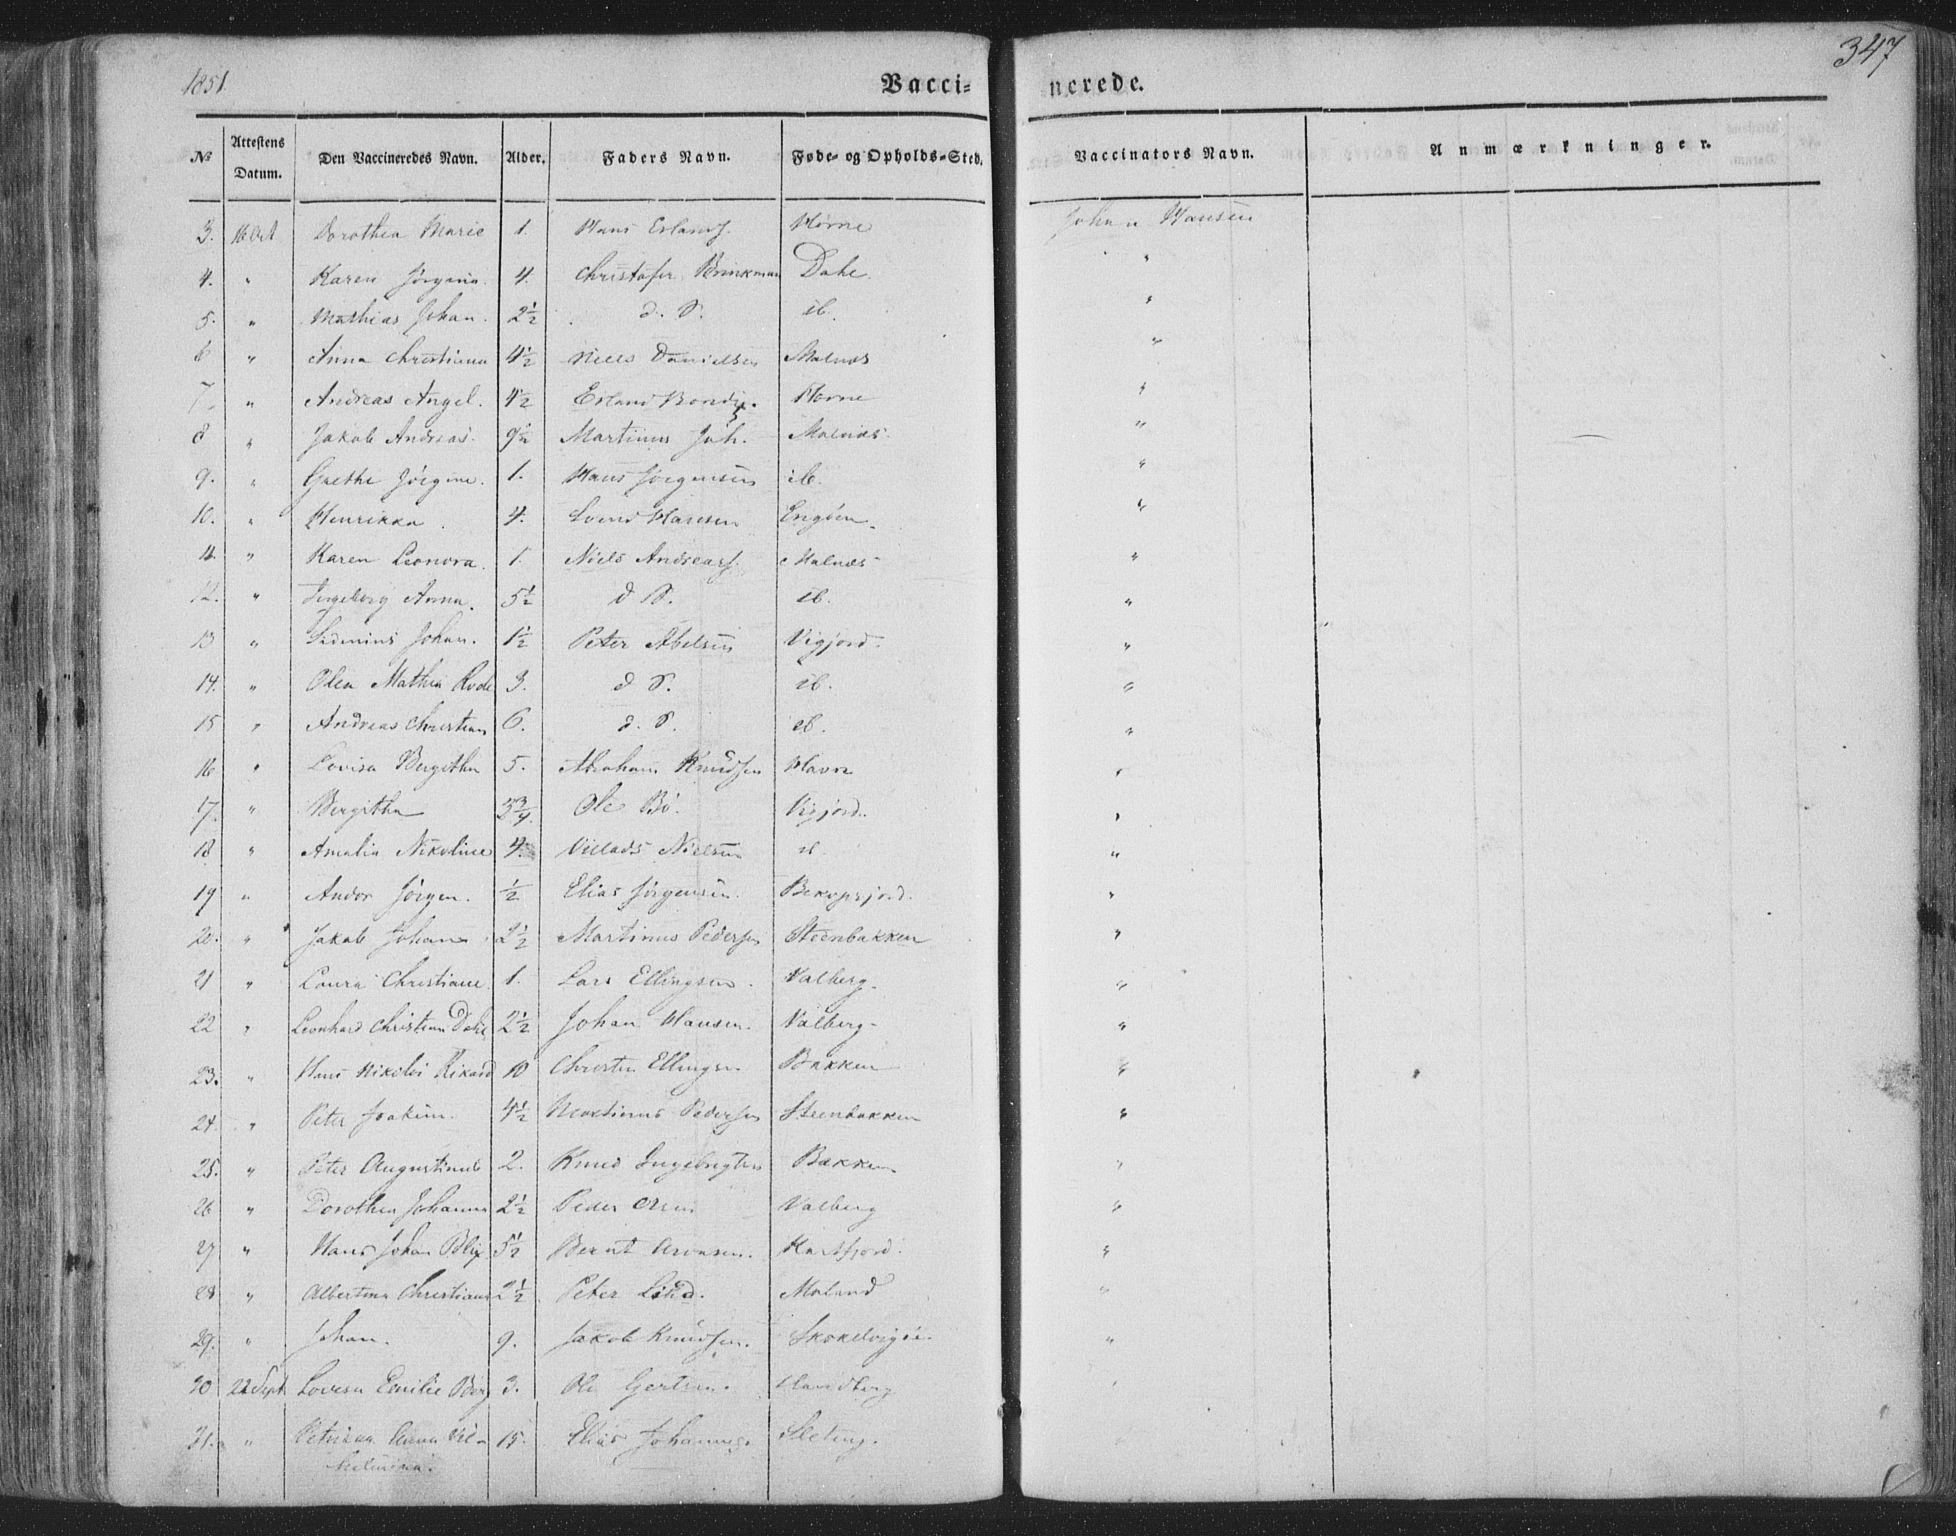 1851
Vacci- nerede.
347
No Attestens Datum. Den Vaccineredes Navn. Alder. Faders Navn. Føde- og Opholds-Sted. Vaccinators Navn. Anmærkninger.
3. 16 Oct Dorothea Marie 1. Hans Erlands. Hørne Johan Hansen
4. " Karen Jørgina. 4. Christofer Brinkman Dahl "
5. " Mathias Johan. 2½ d. S. ib. "
6 " Anna Christiana 4½ Niels Danielsen Malnæs "
7. " Andreas Angel. 4½ Erland Hørne "
8 " Jakob Andreas. 9½ Martinus Joh. Malnæs. "
9. " Grethe Jørgine. 1. Hans Jørgensen ib. "
10. " Henrikka. 4. Svend Hansen Engøen. "
11. " Karen Leonora. 1. Niels Andreass. Malnæs "
12. " Ingeborg Anna. 5½ d S. ib. "
13 " Johan. 1½ Peter Abelsen Vigjord. "
14. " Olea Mathea 3. d S. ib. "
15 " Andreas Christian 6. d. S. ib. "
16 " Lovisa Bergitha 5. Abraham Knudsen "
17. " Bergitha Ole Bö. Vigjord. "
18 " Amalia Nikoline 4. Villads Nielsen ib. "
19 " Andor Jörgen. ½ Elias Jörgensen. "
20. " Jakob Johan 2½ Martinus Pedersen Steenbakken "
21 " Laura Christiane 1. Lars Ellingsen. Valberg. "
22 " Leonhard Christian Dahl 2½ Johan Hansen. Valberg- "
23. " Hans Nikolai Rikard 10 Christen Ellingsen Bakken "
24. " Peter Joakim. 4½ Martinus Pedersen Steenbakken "
25. " Peter Augustinus 2. Knud Ingebrigtsen Bakken "
26 " Dorothea Johanna 2½ Peder Valberg "
27 " Hans Johan Blix 5½ Bernt Aronsen. "
28 " Albertina Christiane 2½ Peter Lind. Moland "
29. " Johan. 9. Jakob Knudsen. "
30 22 Sept. Lovisa Emilie Berg 3. Ole Gertsen. "
31. " Petrikka Anna 15. Elias Johannes.